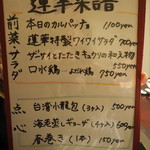 蓮華菜譜
前菜サラダ
本日のカルパッチョ 1100yen
蓮華特製ワイワイサラダ 900yen
ザーサイとたたきキュウリの和え物 550yen
口水鶏…よだれ鶏 750yen
点心
台湾小籠包(3ヶ入) 500yen
海老蒸しギョーザ(3ヶ入) 600yen
春巻き(1本) 150yen